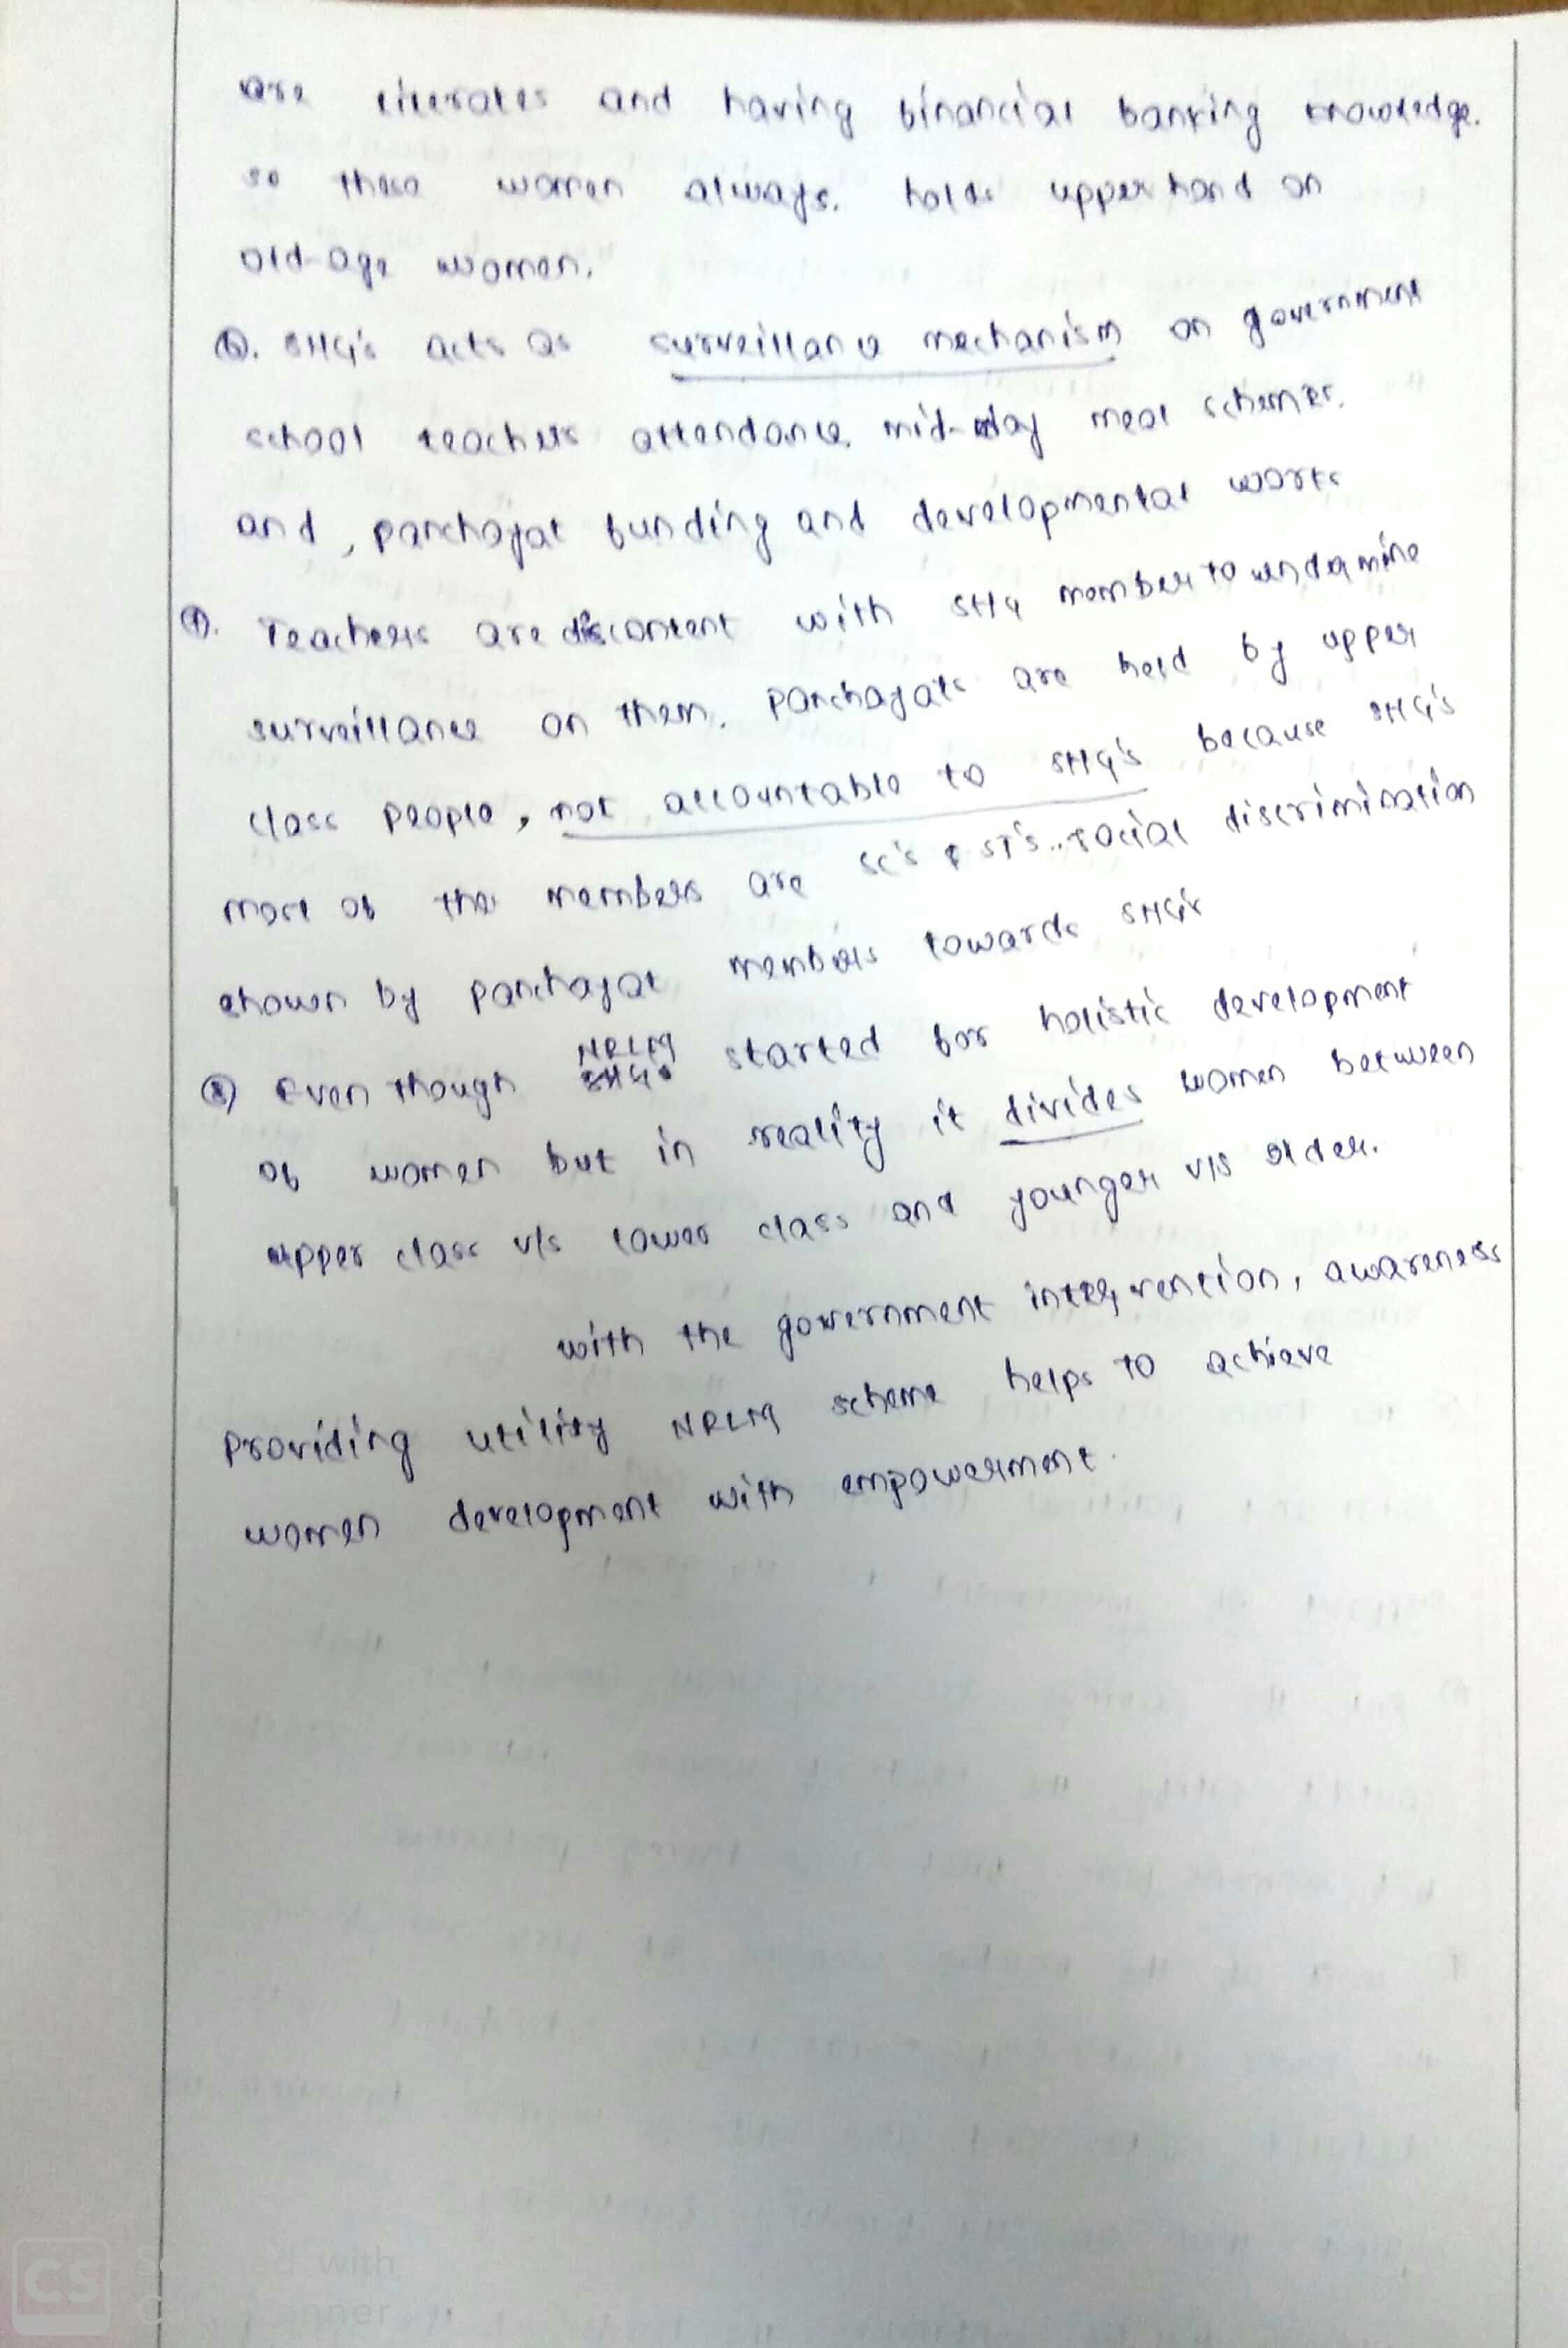 are literates and having financial banking knowledge.
so these women always. holds upper hand on
old-age women.
⑥. SHG's acts as surveillance mechanism on government
school teachers attendance, mid-day meal schemes.
and, panchayat funding and developmental works
⑦. Teachers are discontent with SHG member to undermine
surveillance on them. panchayats are held by upper
class people, not accountable to SHG's because SHG's
most of the members are SC's & ST's.. social discrimination
shown by panchayat members towards SHG's
⑧ Even though NRLM started for holistic development
of women but in reality it divides women between
upper class v/s lower class and younger v/s older.
with the government intervention, awareness
providing utility NRLM scheme helps to achieve
women development with empowerment.
CS Scanned with
CamScanner